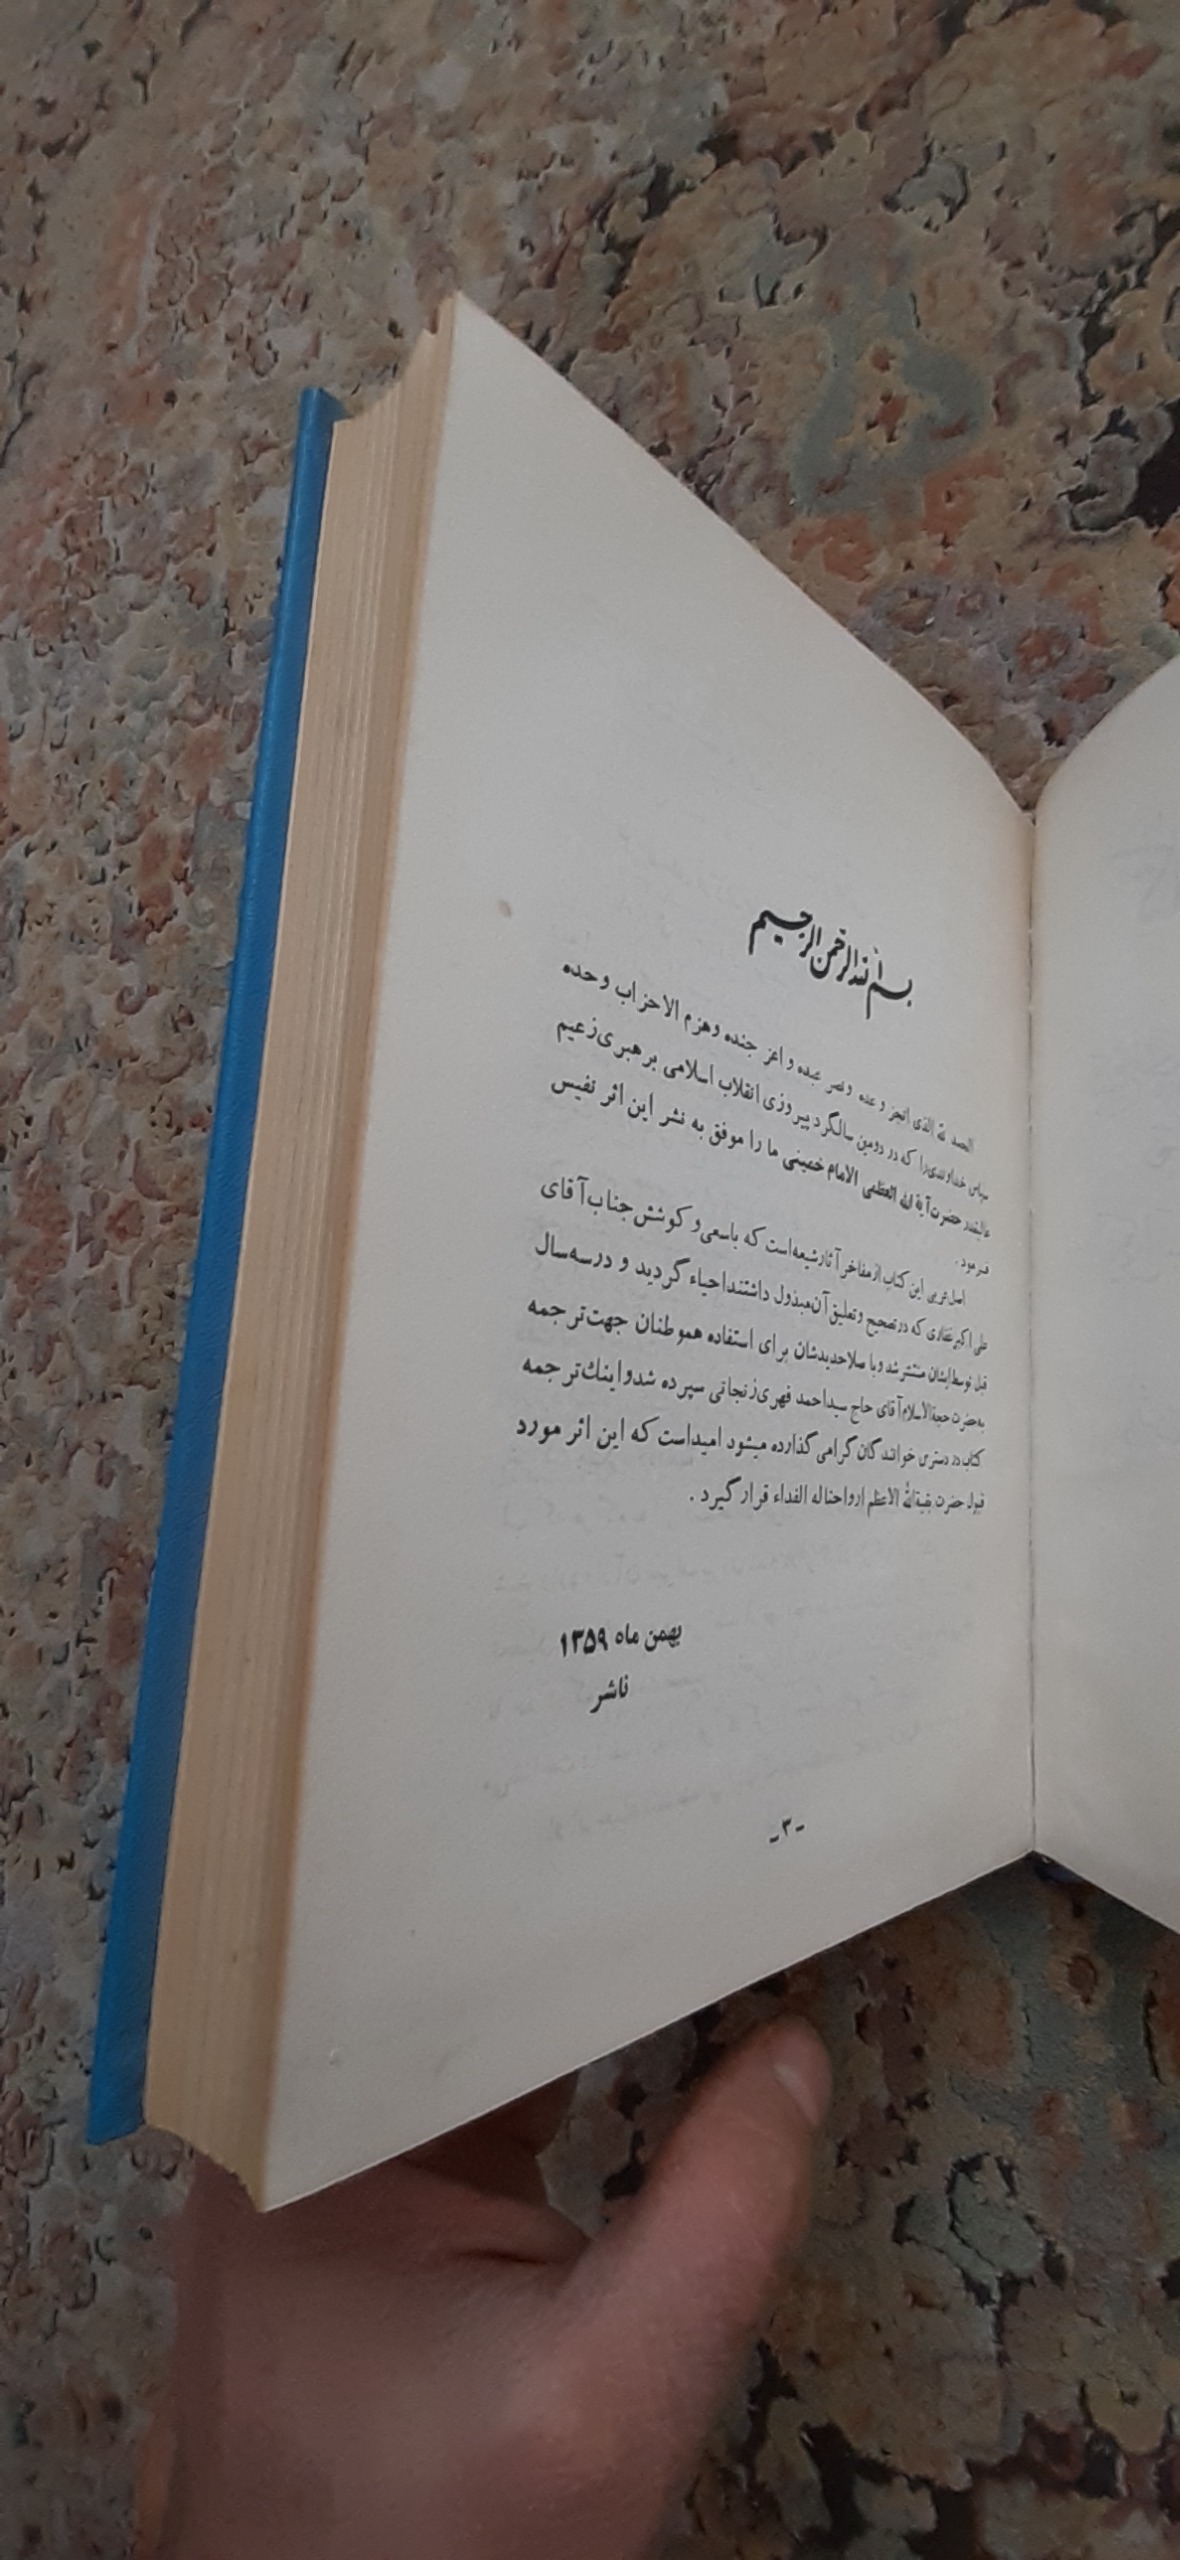 بسم الله الرحمن الرحیم
الحمد لله الذی انجز وعده ونصر عبده و اعز جنده وهزم الاحزاب وحده
سپاس خداوندی را که در دومین سالگرد پیروزی انقلاب اسلامی برهبری زعیم
عالیقدر حضرت آیة الله العظمی الامام خمینی ما را موفق به نشر این اثر نفیس
فرمود.
اصل عربی این کتاب از مفاخر آثار شیعه است که باسعی و کوشش جناب آقای
علی اکبر غفاری که در تصحیح و تعلیق آن مبذول داشتند احیاء گردید و در سه سال
قبل توسط ایشان منتشر شد و با صلاحدیدشان برای استفاده هموطنان جهت ترجمه
به حضرت حجة الاسلام آقای حاج سید احمد فهری زنجانی سپرده شد و اینك ترجمه
کتاب در دسترس خوانندگان گرامی گذارده میشود امید است که این اثر مورد
قبول حضرت بقیة الله الاعظم ارواحنا له الفداء قرار گیرد.
بهمن ماه ۱۳۵۹
ناشر
-۳-